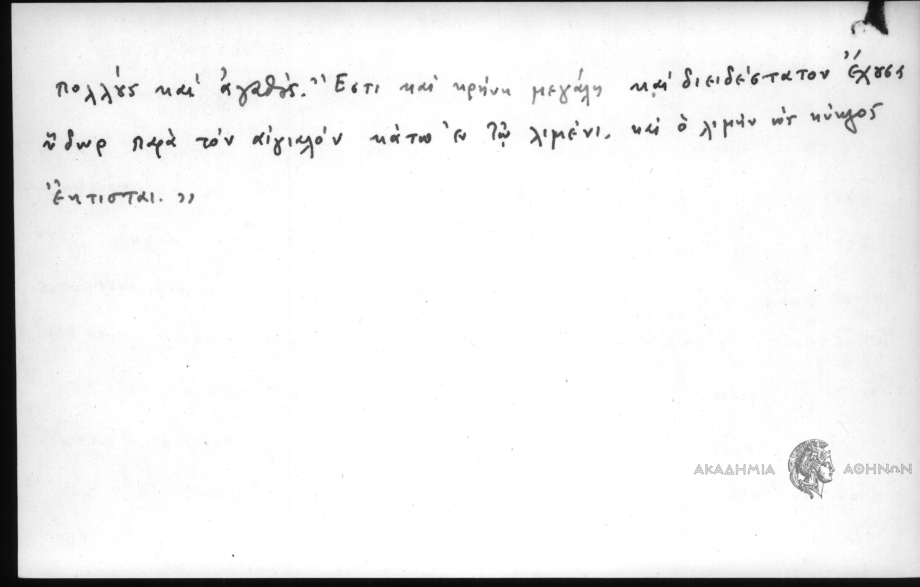 πολλούς καὶ ἀγαθούς. Ἔστι καὶ κρήνη μεγάλη καὶ διειδέστατον ἔχουσα
ὕδωρ παρὰ τὸν αἰγιαλὸν κάτω ἐν τῷ λιμένι. καὶ ὁ λιμὴν ὡς κύκλος
ἔκτισται. »
ΑΚΑΔΗΜΙΑ ΑΘΗΝΩΝ